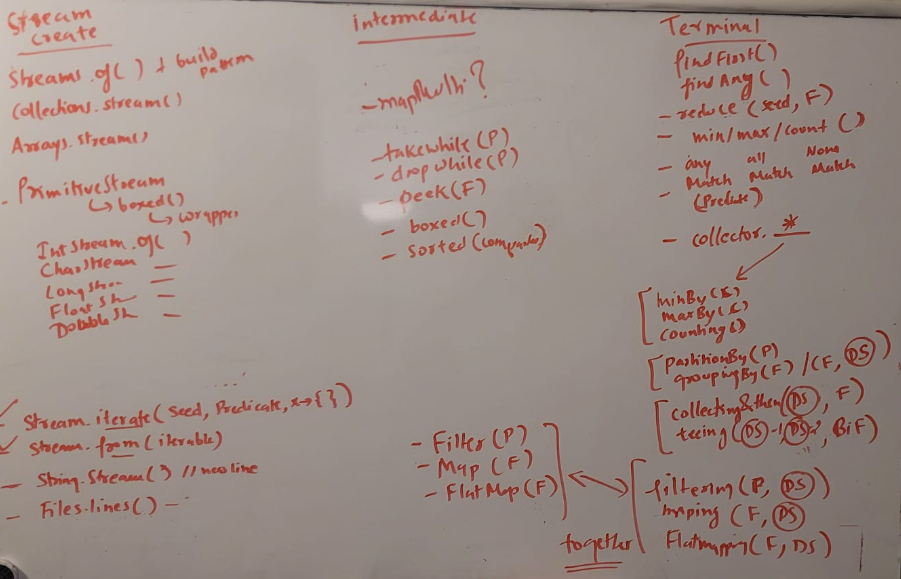 Stream
create
Streams.of() + build
pattern
Collections.stream()
Arrays.stream()
- PrimitiveStream
↳ boxed()
↳ wrapper
IntStream.of( )
CharStream —
LongStre —
FloatSt —
DoubleSt —
✓ Stream.iterate(seed, Predicate, x→{})
✓ Stream.from(iterable)
- String.Stream() // newline
- Files.lines() -
intermediate
- mapMulti?
- takewhile(P)
- dropwhile(P)
- peek(F)
- boxed()
- sorted(comparator)
- Filter(P)
- Map(F)
- FlatMap(F)
Terminal
findFirst()
findAny()
- reduce(seed, F)
- min/max/count()
- any all None
- Match Match Match
(Predicate)
- collector. *
minBy(
maxBy(
counting()
partitionBy(P)
groupingBy(F) /(F, DS)
collecting&then(DS, F)
teeing(DS-1, DS-2, BiF)
filtering(P, DS)
mapping(F, DS)
Flatmapping(F, DS)
together